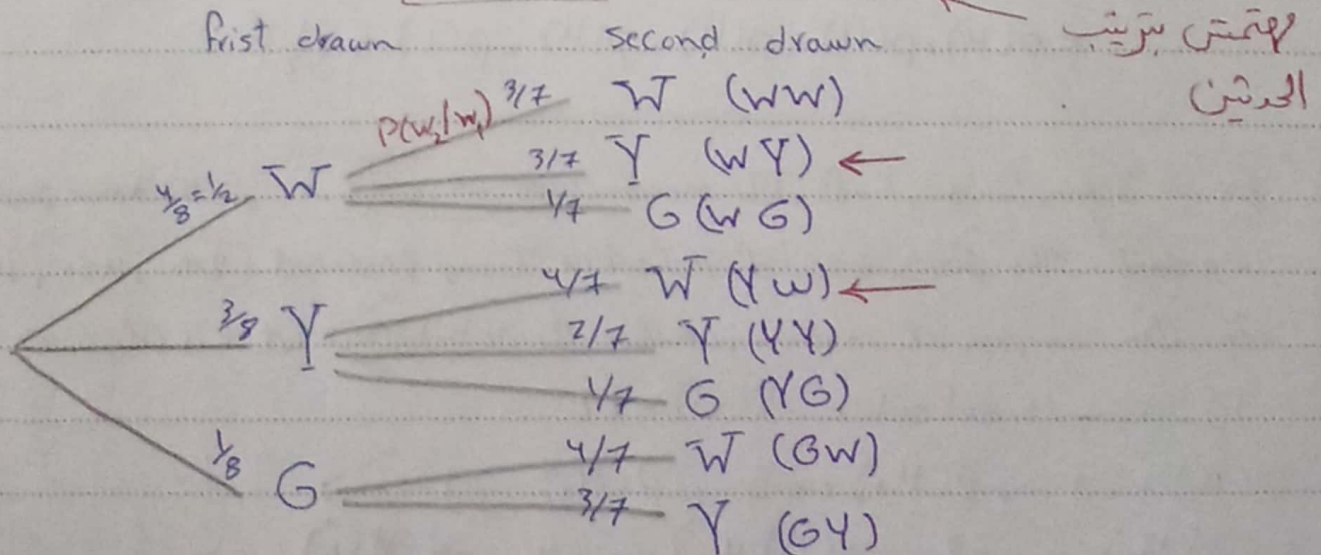 frist drawn second drawn مهتمش بترتيب
الحدثين
P(W₂/W₁) 3/7 W (WW)
4/8=1/2 W 3/7 Y (WY) ←
1/7 G (WG)
4/7 W (YW) ←
3/8 Y 2/7 Y (YY)
1/7 G (YG)
1/8 G 4/7 W (GW)
3/7 Y (GY)